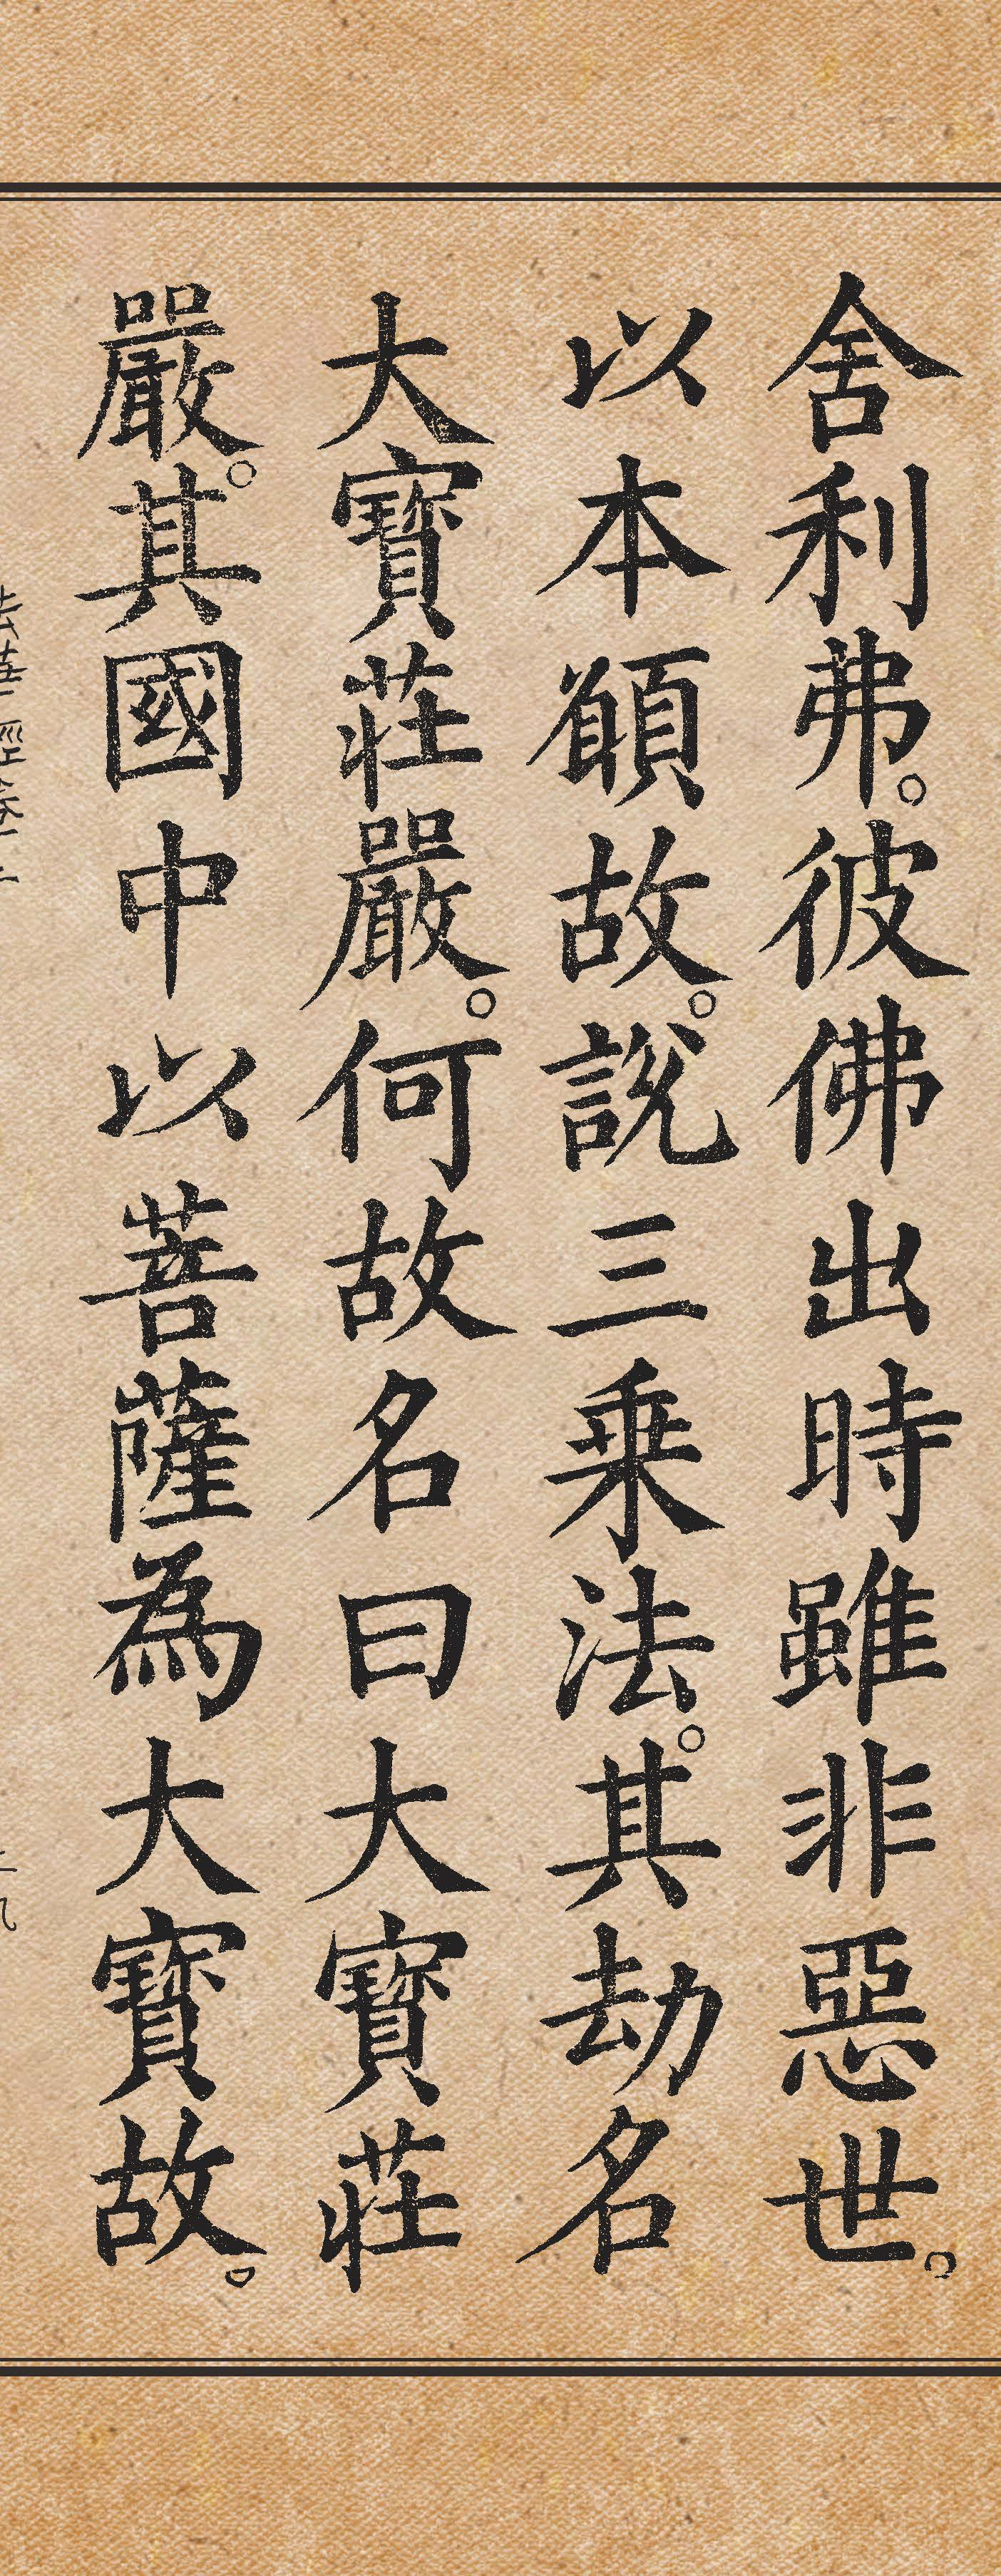 舍利弗。彼佛出時雖非惡世。
以本願故。說三乗法。其劫名
大寶莊嚴。何故名曰大寶莊
嚴。其國中以菩薩為大寶故。